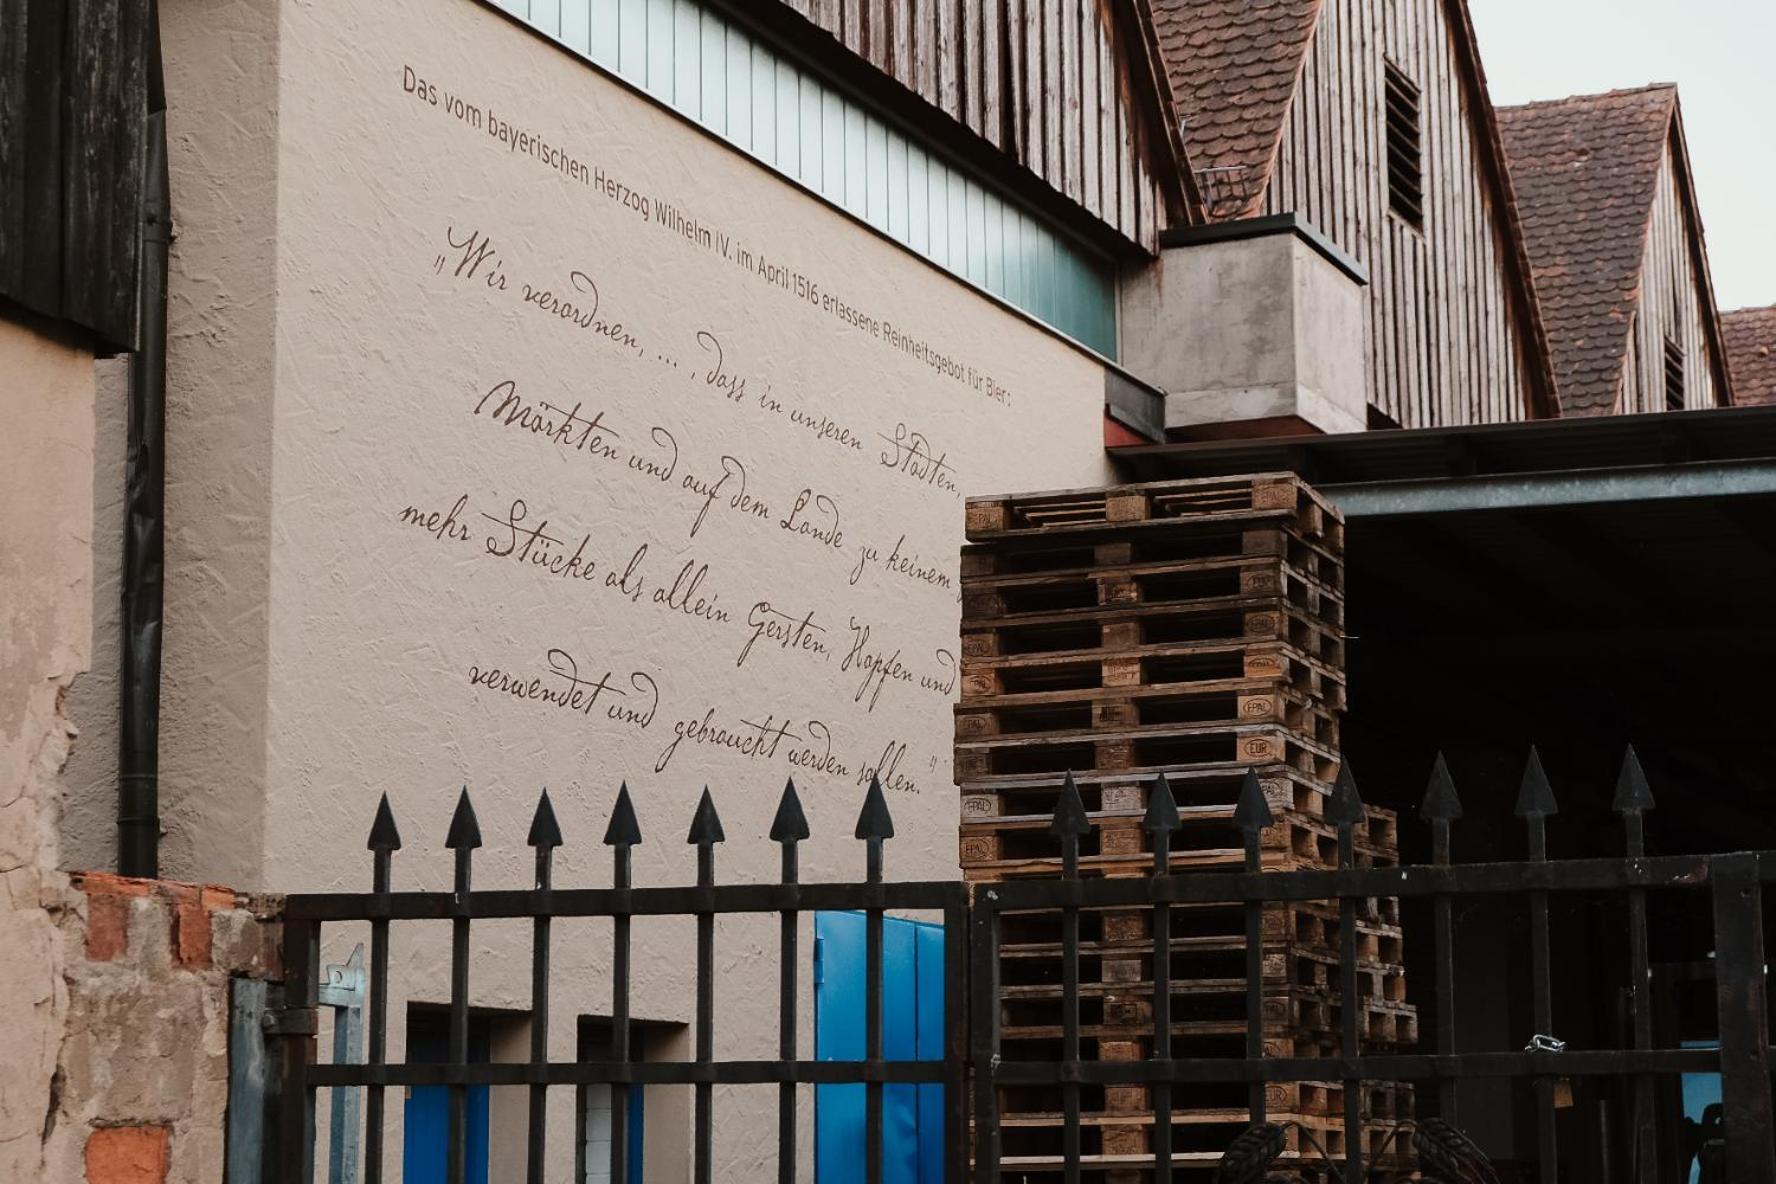 Das vom bayerischen Herzog Wilhelm IV. im April 1516 erlassene Reinheitsgebot für Bier:
„Wir verordnen, ... , dass in unseren Städten,
Märkten und auf dem Lande zu keinem
mehr Stücke als allein Gersten, Hopfen und
verwendet und gebraucht werden sollen."
EPAL
EPAL
EUR
EPAL
EPAL
EUR